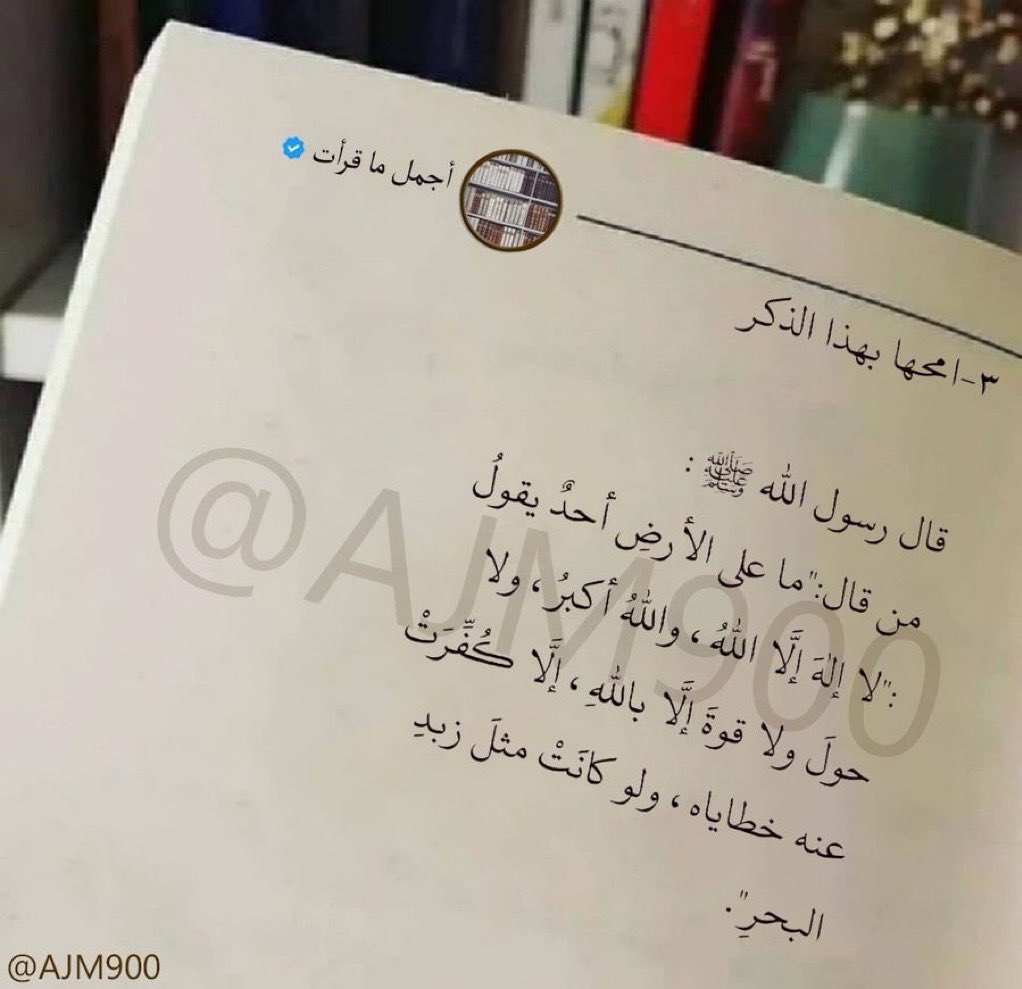 أجمل ما قرأت
٣-امحها بهذا الذكر
قال رسول الله ﷺ :
من قال:"ما على الأرضِ أحدٌ يقولُ
:"لا إلهَ إلَّا اللهُ، واللهُ أكبرُ، ولا
حولَ ولا قوةَ إلَّا باللهِ، إلَّا كُفِّرَتْ
عنه خطاياه، ولو كانَتْ مثلَ زبدِ
البحرِ".
@AJM900
@AJM900